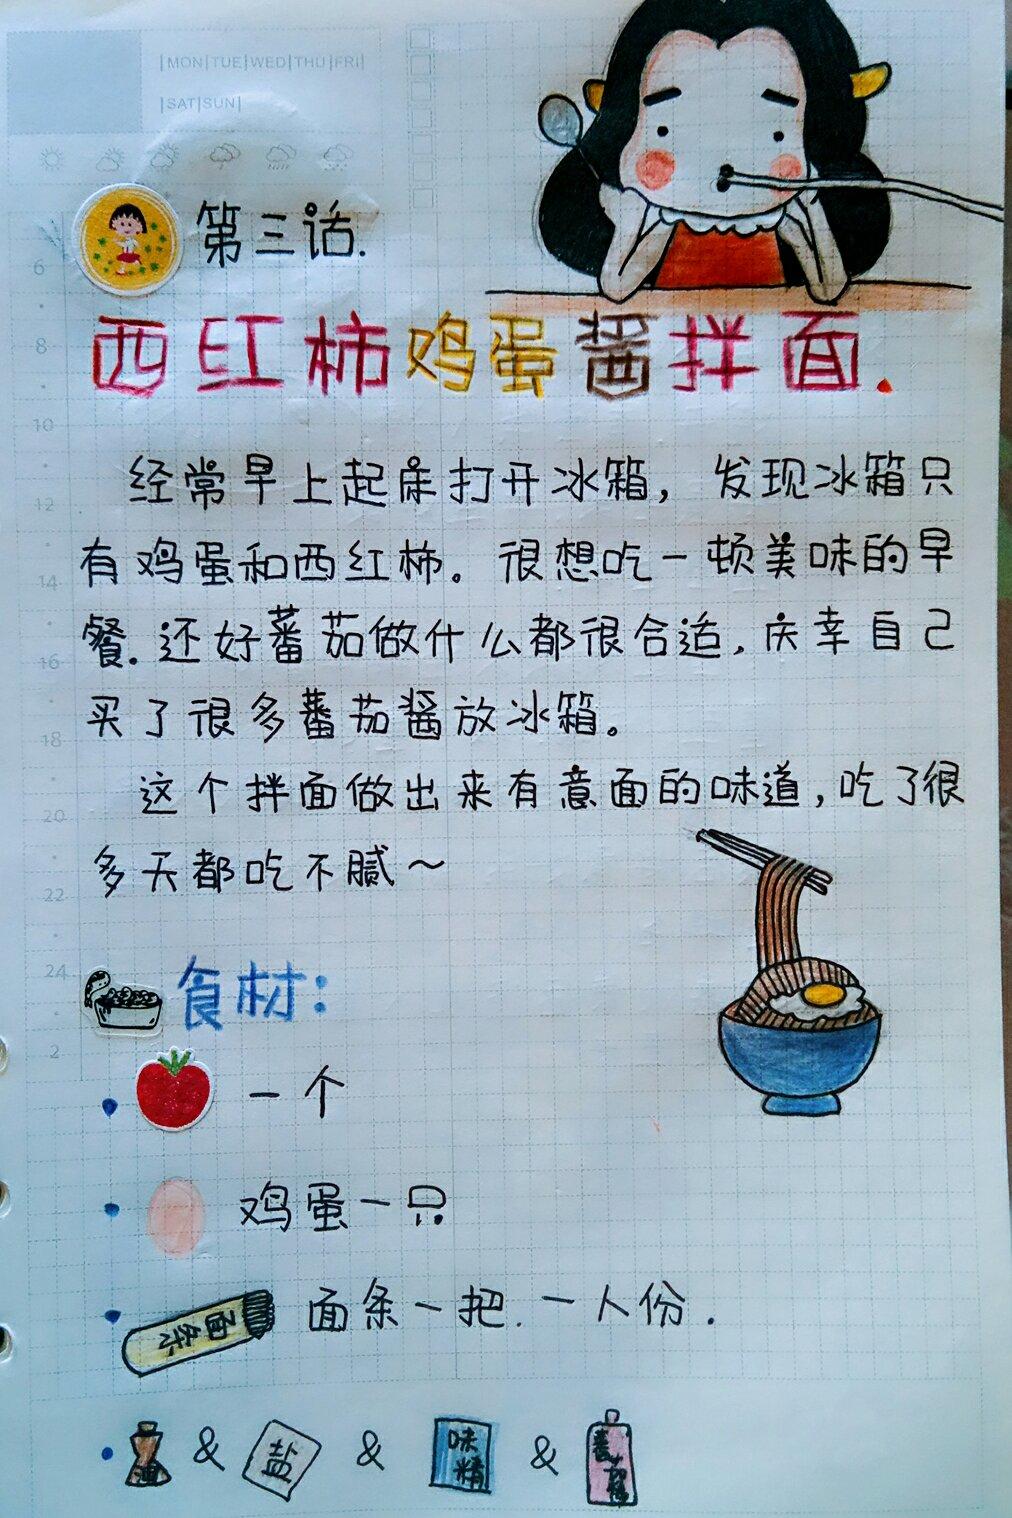 MON|TUE|WED|THU|FRI|
|SAT|SUN|
第三话.
西红柿鸡蛋酱拌面.
经常早上起床打开冰箱，发现冰箱只
有鸡蛋和西红柿。很想吃一顿美味的早
餐.还好蕃茄做什么都很合适,庆幸自己
买了很多蕃茄酱放冰箱。
这个拌面做出来有意面的味道,吃了很
多天都吃不腻～
食材:
一个
鸡蛋一只
面条
面条一把.一人份.
油 & 盐 & 味精 & 蕃茄酱
6
8
10
12
14
16
18
20
22
24
2